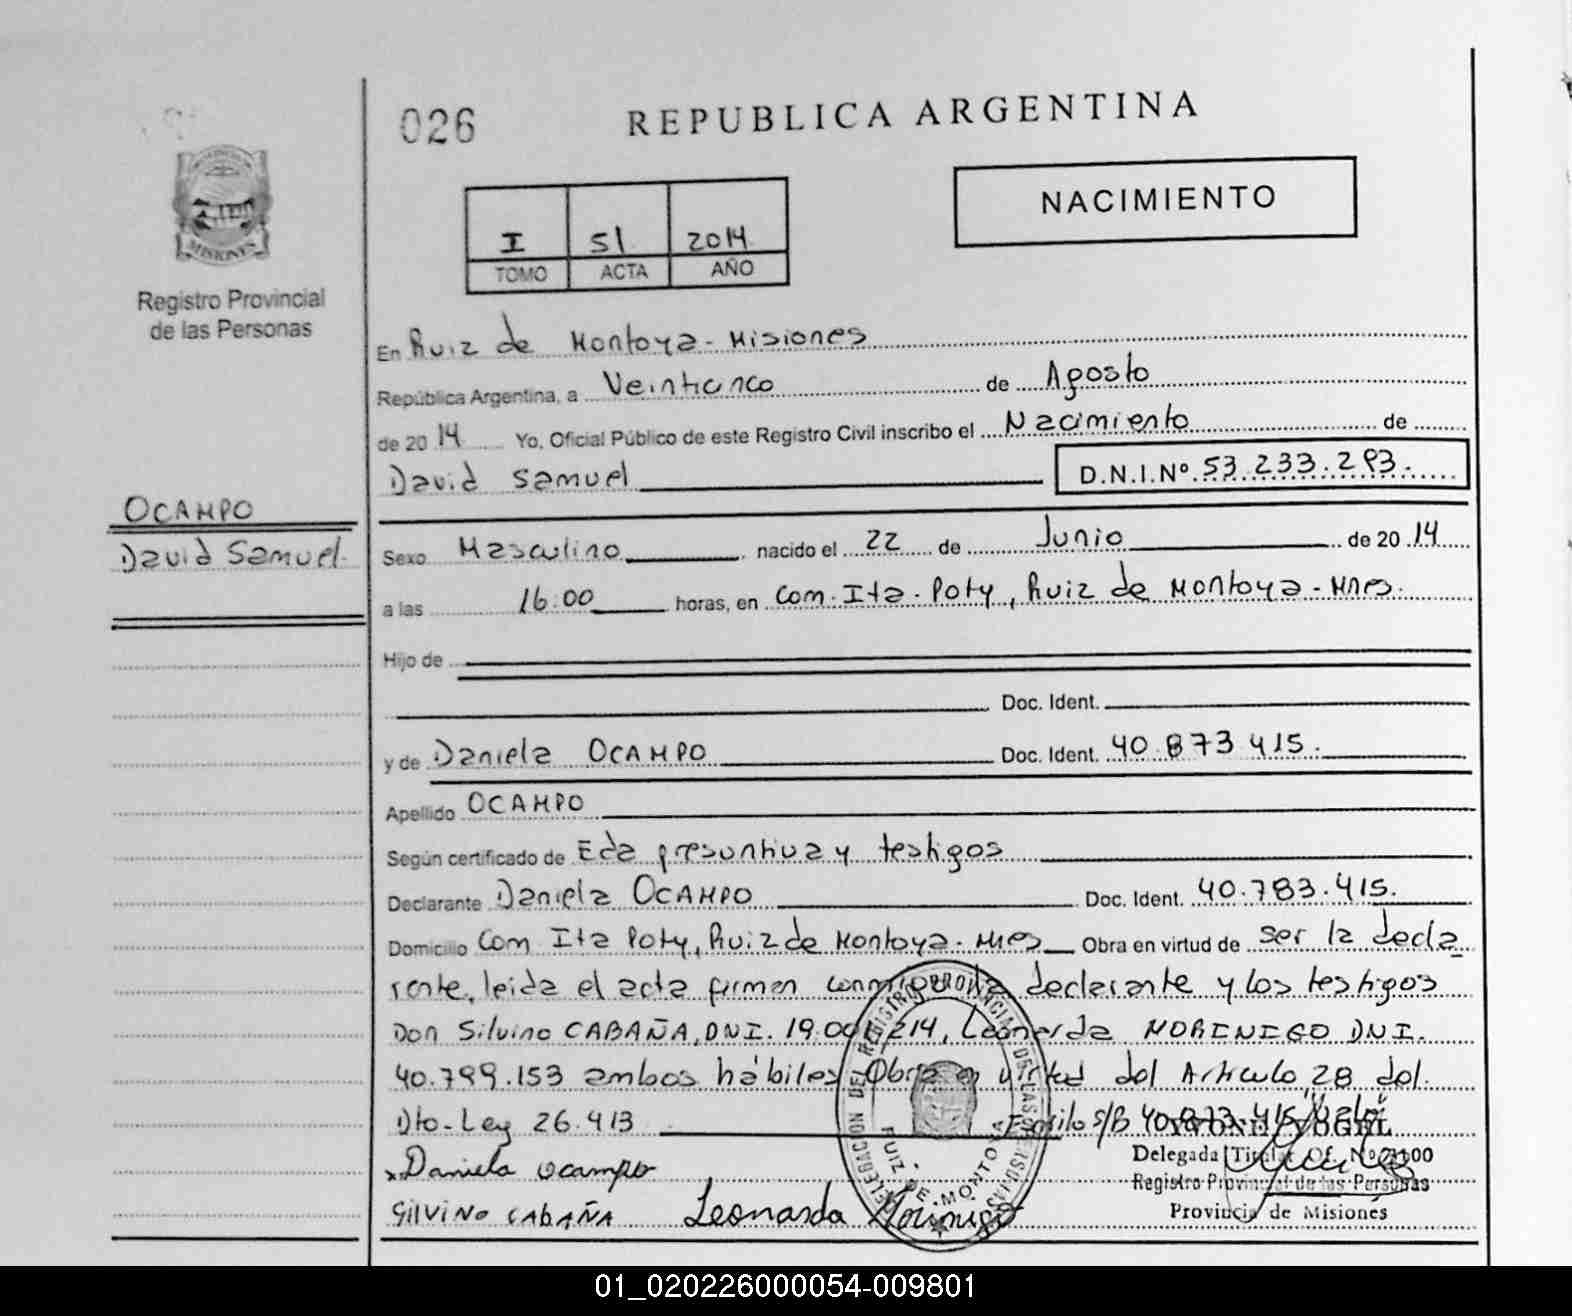 026
REPUBLICA ARGENTINA
NACIMIENTO
I 51 2014
TOMO ACTA AÑO
MISIONES
Registro Provincial
de las Personas
En Ruiz de Montoya - Misiones
República Argentina, a Veinticinco de Agosto
de 20 14 Yo, Oficial Público de este Registro Civil inscribo el Nacimiento de
David Samuel D.N.I.Nº 53.233.293.
OCAMPO
David Samuel
Sexo Masculino nacido el 22 de Junio de 20 14
a las 16:00 horas, en Com. Ita - Poty, Ruiz de Montoya - Mnes.
Hijo de
Doc. Ident.
y de Daniela OCAMPO Doc. Ident. 40.873.415.
Apellido OCAMPO
Según certificado de Eda presuntiva y testigos
Declarante Daniela OCAMPO Doc. Ident. 40.783.415.
Domicilio Com Ita Poty, Ruiz de Montoya - Mnes Obra en virtud de ser la decla
rante, leida el acta firman conmigo la declarante y los testigos
Don Silvino CABAÑA, DNI. 19.001.214, Leonarda MORINIGO DNI.
40.799.153 ambos hábiles. Obra en virtud del Articulo 28 del
Dto-Ley 26.413 S/B 40.873.415 "Vale"
Daniela ocampo
SILVINO CABAÑA Leonarda Morinigo
DELEGACION DEL REGISTRO PROVINCIAL DE LAS PERSONAS
RUIZ DE MONTOYA
VOGEL
Delegada Titular Of. Nº
Registro Provincial de las Personas
Provincia de Misiones
01_020226000054-009801